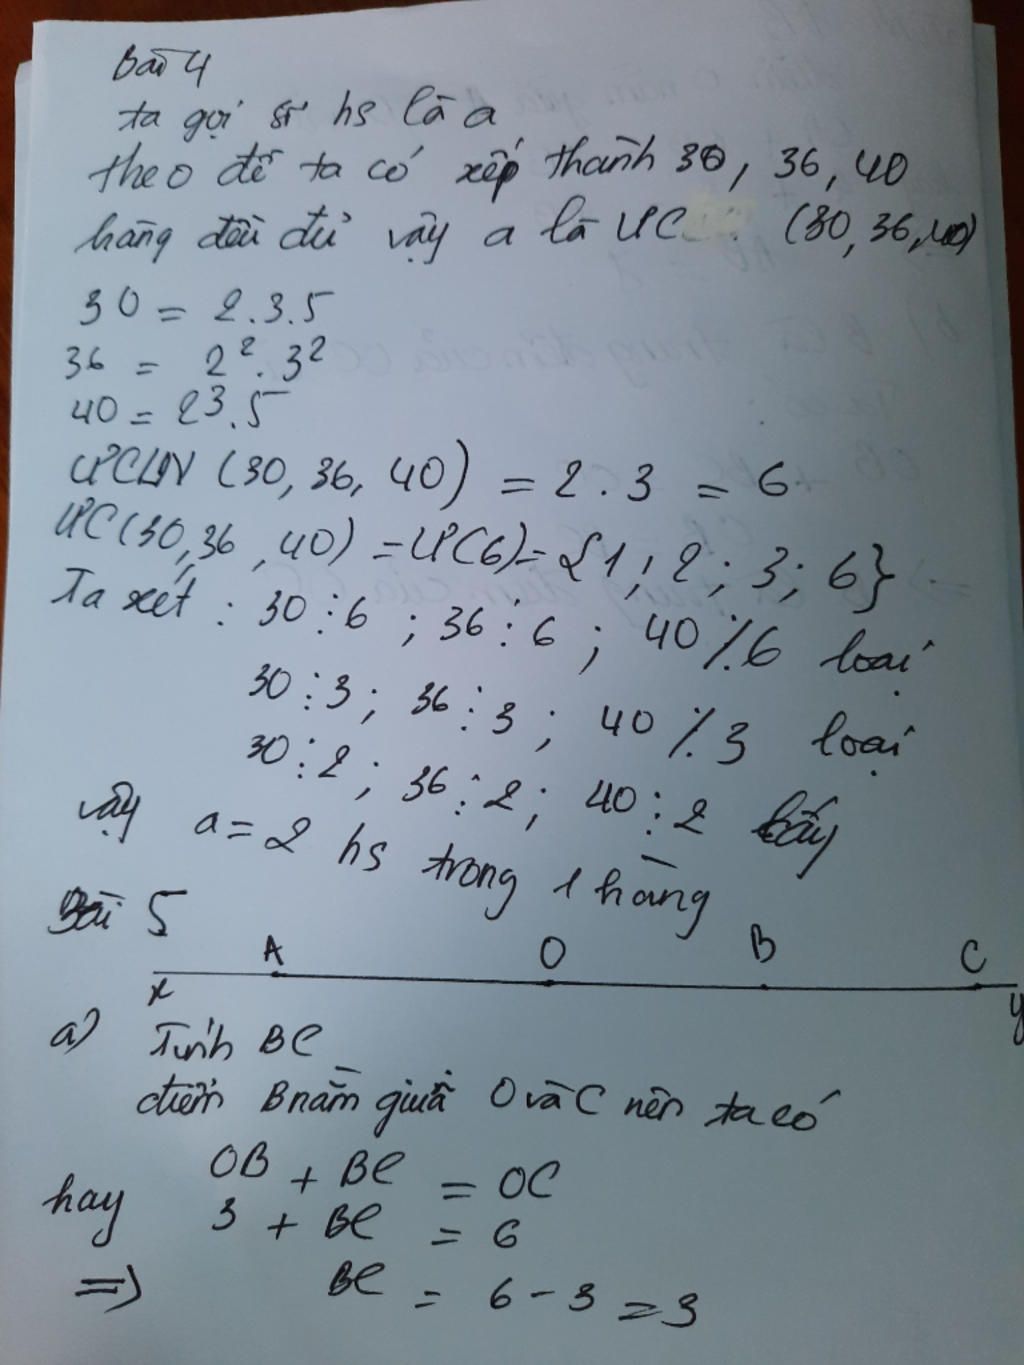 Bài 4
ta gọi số hs là a
theo đề ta có xếp thành 30, 36, 40
hàng đều đủ vậy a là ƯC (30, 36, 40)
30 = 2.3.5
36 = 2².3²
40 = 2³.5
ƯCLN (30, 36, 40) = 2.3 = 6
ƯC(30,36,40) = Ư(6) = {1; 2; 3; 6}
Ta xét: 30⋮6; 36⋮6; 40⋮̸6 loại
30⋮3; 36⋮3; 40⋮̸3 loại
30⋮2; 36⋮2; 40⋮2 lấy
vậy a = 2 hs trong 1 hàng
Bài 5
A O B C
x y
a) Tính BC
điểm B nằm giữa O và C nên ta có
OB + BC = OC
hay 3 + BC = 6
=> BC = 6 - 3 = 3